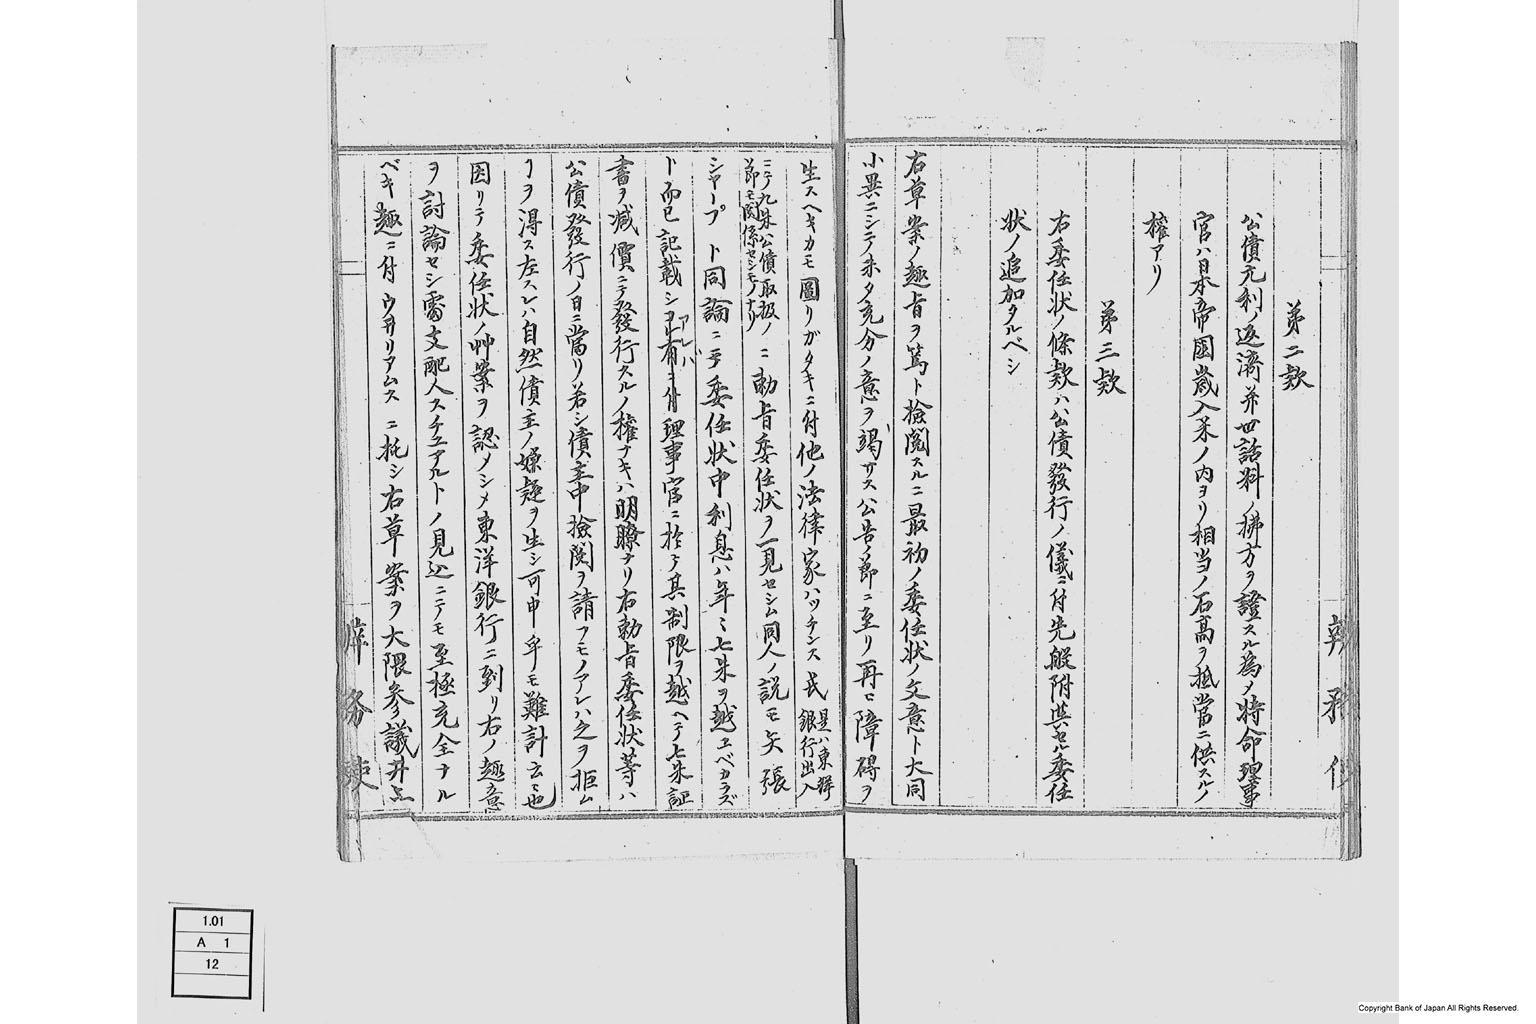 第二款
公債元利ノ返済并世話料ノ拂方ヲ證スル為メ特命理事
官ハ日本帝国歳入米ノ内ヨリ相当ノ石高ヲ抵當ニ供スルノ
權アリ
第三款
右委任状ノ條款ハ公債發行ノ儀ニ付先般附与セル委任
状ノ追加タルベシ
右草案ノ趣旨ヲ篤ト撿閲スルニ最初ノ委任状ノ文意ト大同
小異ニシテ未タ充分ノ意ヲ竭サス公告ノ節ニ至リ再ヒ障碍ヲ
生スヘキカモ圖リガタキニ付他ノ法律家ハッチンス氏是ハ東洋銀行出入
ニテ九朱公債取扱ノ節モ関係セシモノナリニ勅旨委任状ヲ一見セシム同人ノ説モ矢張
シャープト同論ニテ委任状中利息ハ年ニ七朱ヲ越エベカラズ
ト而已記載シアレバ理事官ニ於テ其制限ヲ越ヘテ七朱証
書ヲ減價ニテ發行スルノ權ナキハ明瞭ナリ右勅旨委任状等ハ
公債發行ノ日ニ當リ若シ債主中撿閲ヲ請フモノアレハ之ヲ拒ム
ヿヲ得ス左スレハ自然債主ノ嫌疑ヲ生シ可申乎モ難計云々也
因リテ委任状ノ艸案ヲ認メシメ東洋銀行ニ到リ右ノ趣意
ヲ討論セシ處支配人スチュアルトノ見込ニテモ至極充全ナル
ベキ趣ニ付ウヰリアムスニ托シ右草案ヲ大隈参議井上
1.01
A 1
12
Copyright Bank of Japan All Rights Reserved.